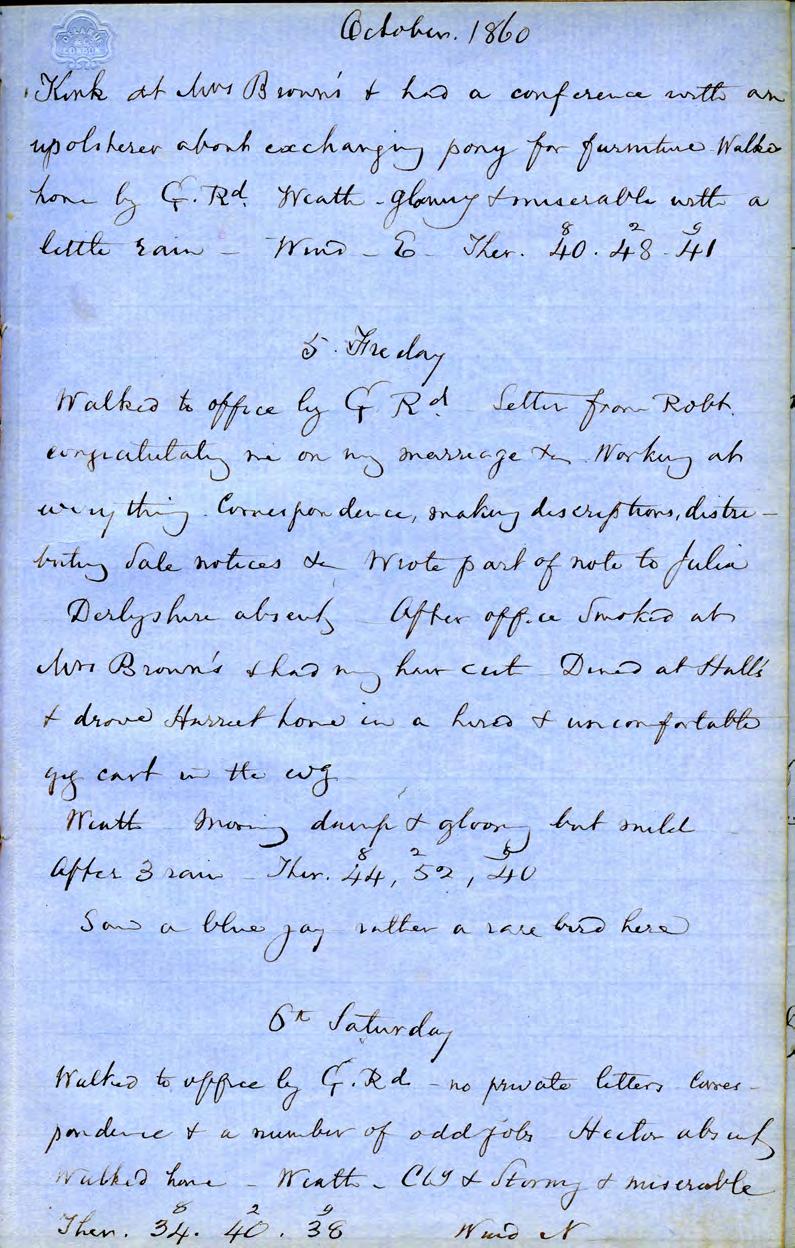 October. 1860
DE LA RUE
& CO
LONDON
Kirk at Mrs Brown's & had a conference with an
upolsterer about exchanging pony for furniture Walked
home by G. Rd. Weath - gloomy & miserable with a
little rain - Wind - E - Ther. 40. 48. 41
8 2 9
5. Friday
Walked to office by G Rd. Letter from Robt.
congratulating me on my marriage &c. Working at
everything. Correspondence, making descriptions, distri-
buting Sale notices &c Wrote part of note to Julia
Derbyshire absent. After office Smoked at
Mrs Brown's & had my hair cut Dined at Hall's
& drove Harriet home in a hired & uncomfortable
gig cart in the evg
Weath Morning damp & gloomy but mild
After 3 rain - Ther. 44, 52, 40
8 2
Saw a blue jay rather a rare bird here
6th Saturday
Walked to office by G. Rd - no private letters Corres-
pondence & a number of odd jobs Hector absent
Walked home - Weath - Cldy & Stormy & miserable
8 2 9
Ther. 34. 40. 38 Wind N